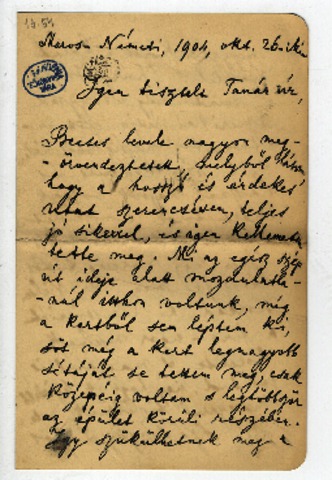 Maros Németi, 1904, okt. 26-ikán
Igen tisztelt Tanár úr,
Becses levele nagyon meg-
-örvendeztetett, melyből látom,
hogy a hosszú és érdekes
utat szerencsésen, teljes
jó sikerrel, és igen kellemesen
tette meg. Mi az egész szép
út ideje alatt mozdulatla-
-núl itthon voltunk, még
a kertből sem léptem ki,
sőt még a kert legnagyobb
sétáját se tettem meg, csak
közepéig voltam s legtöbbször
az épület körüli részében.
Így szűkülhetnek meg a